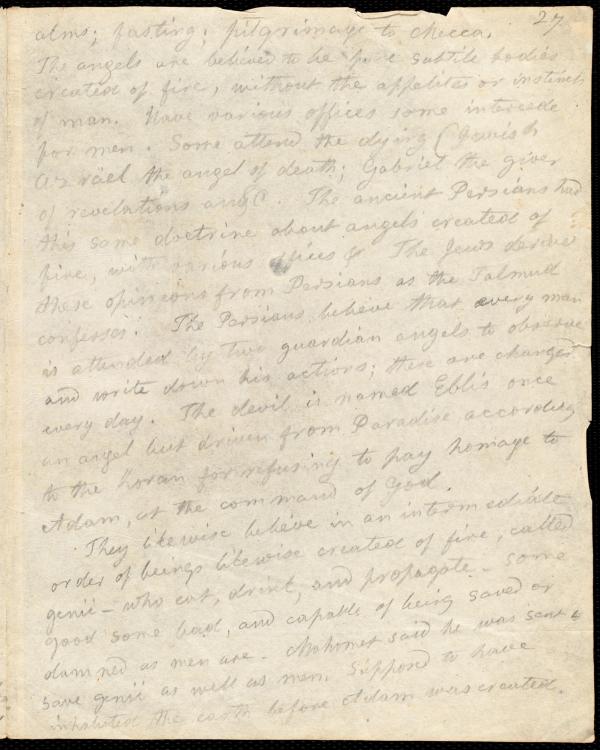 27
alms; fasting; pilgrimage to Mecca.
The angels are believed to be pure subtile bodies
created of fire, without the appetites or instincts
of man. Have various offices some intercede
for men. Some attend the dying (Jewish
Azrael the angel of death; Gabriel the giver
of revelations &c. The ancient Persians had
this same doctrine about angels created of
fire, with various offices & The Jews derive
these opinions from Persians as the Talmud
confesses. The Persians believe that every man
is attended by two guardian angels to observe
and write down his actions; these are changed
every day. The devil is named Eblis once
an angel but driven from Paradise according
to the Koran for refusing to pay homage to
Adam, at the command of God.
They likewise believe in an intermediate
order of beings likewise created of fire, called
genii - who eat, drink, and propagate - some
good some bad, and capable of being saved or
damned as men are. Mahomet said he was sent to
save genii as well as men. Supposed to have
inhabited the earth before Adam was created.